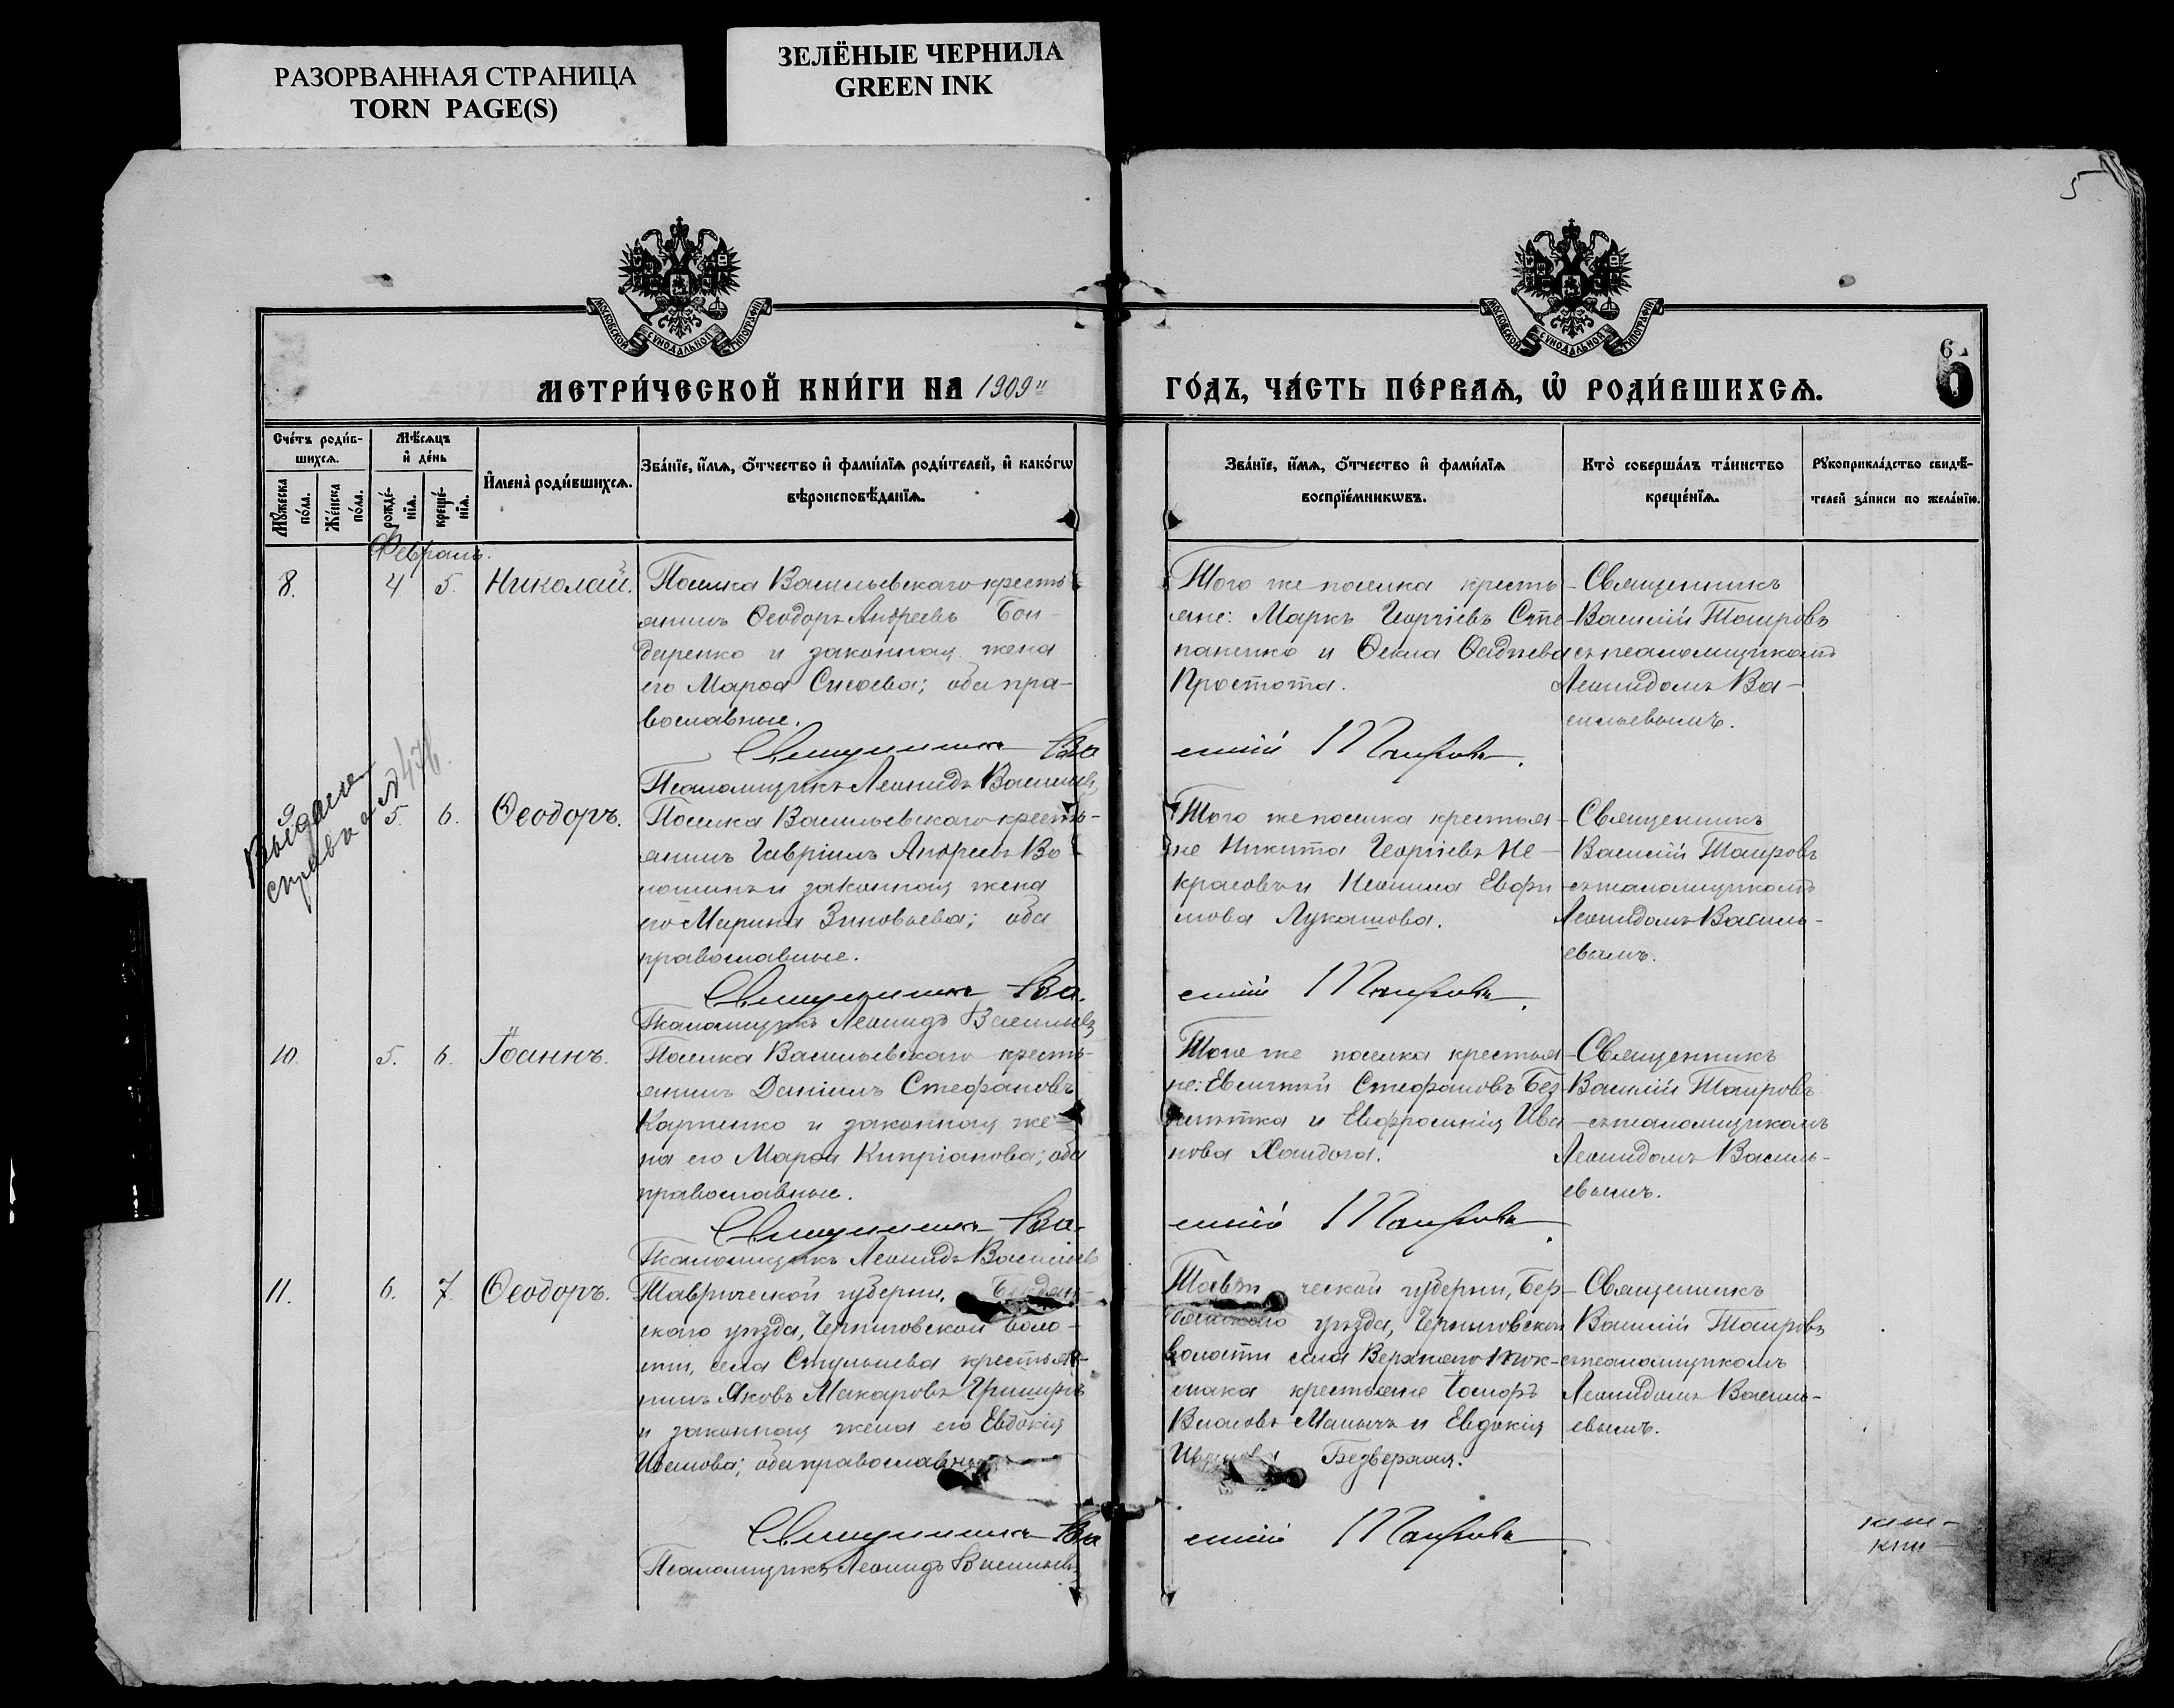 РАЗОРВАННАЯ СТРАНИЦА
TORN PAGE(S)
ЗЕЛЁНЫЕ ЧЕРНИЛА
GREEN INK
5
МОСКОВСКОЙ СѴНОДАЛЬНОЙ ТИПОГРАФІИ
МОСКОВСКОЙ СѴНОДАЛЬНОЙ ТИПОГРАФІИ
6
6
МЕТРИ́ЧЕСКОЙ КНИ́ГИ НА 1909
ГО́ДЪ, ЧА́СТЬ ПЕ́РВАѦ, Ѿ РОДИ́ВШИХСѦ.
Сче́тъ роди́в-
шихсѧ.
Мꙋ́жеска
по́ла.
Же́нска
по́ла.
Мѣ́сѧцъ
и҆ де́нь
рожде́-
нїѧ.
креще́-
нїѧ.
И҆мена̀ роди́вшихсѧ.
Зва́нїе, и҆́мѧ, ѻ҆́тчество и҆ фами́лїѧ роди́телей, и҆ како́гѡ
вѣроисповѣ́данїѧ.
Зва́нїе, и҆́мѧ, ѻ҆́тчество и҆ фами́лїѧ
воспрїе́мникѡвъ.
Кто̀ соверша́лъ та́инство
креще́нїѧ.
Рꙋкоприкла́дство свидѣ́-
телей за́писи по жела́нїю.
Февраль.
8. 4 5. Николай.
Поселка Васильевскаго кресть-
янинъ Ѳеодоръ Андреевъ Бон-
даренко и законная жена
его Марѳа Сисоева; оба пра-
вославные.
Священникъ Ва
Псаломщикъ Леонидъ Васильевъ
Того же поселка кресть-
яне: Маркъ Георгіевъ Сте-
паненко и Ѳекла Ѳаддеева
Простота.
силій Таировъ.
Священникъ
Василій Таировъ
съ псаломщикомъ
Леонидомъ Ва-
сильевымъ.
Выдана
справка № 
9. 5. 6. Ѳеодоръ.
Поселка Васильевскаго кресть-
янинъ Гавріилъ Андреевъ Во
лошинъ и законная жена
его Марина Зиновьева; оба
православные.
Священникъ Ва.
Псаломщикъ Леонидъ Васильевъ
Того же поселка крестья-
не Никита Георгіевъ Не-
красовъ и Неонила Евфи
мова Лукашова.
силій Таировъ.
Священникъ
Василій Таировъ
съ псаломщикомъ
Леонидомъ Василь-
евымъ.
10. 5. 6. Іоаннъ.
Поселка Васильевскаго кресть-
янинъ Даніилъ Стефановъ
Карпенко и законная же-
на его Марѳа Кипріанова; оба
православные.
Священникъ Ва-
Псаломщикъ Леонидъ Васильевъ
Того же поселка крестья-
не: Евсигній Стефановъ Без-
и Евфросинія Ива
нова Хандога.
силій Таировъ.
Священникъ
Василій Таировъ
съ псаломщикомъ
Леонидомъ Василь-
евымъ.
11. 6. 7. Ѳеодоръ.
Таврической губерніи,
скаго уѣзда, Черниговской воло-
сти, села крестья-
нинъ Яковъ Макаровъ
и законная жена его Евдокія
Иванова; оба православные
Священникъ Ва
Псаломщикъ Леонидъ Васильевъ
ческой губерніи, Бер-
дянскаго уѣзда, Черниговской
волости села Верхняго Ток-
мака крестьяне
Власовъ и Евдокія
Безверхая.
силій Таировъ.
Священникъ
Василій Таировъ
съ псаломщикомъ
Леонидомъ Василь-
евымъ.